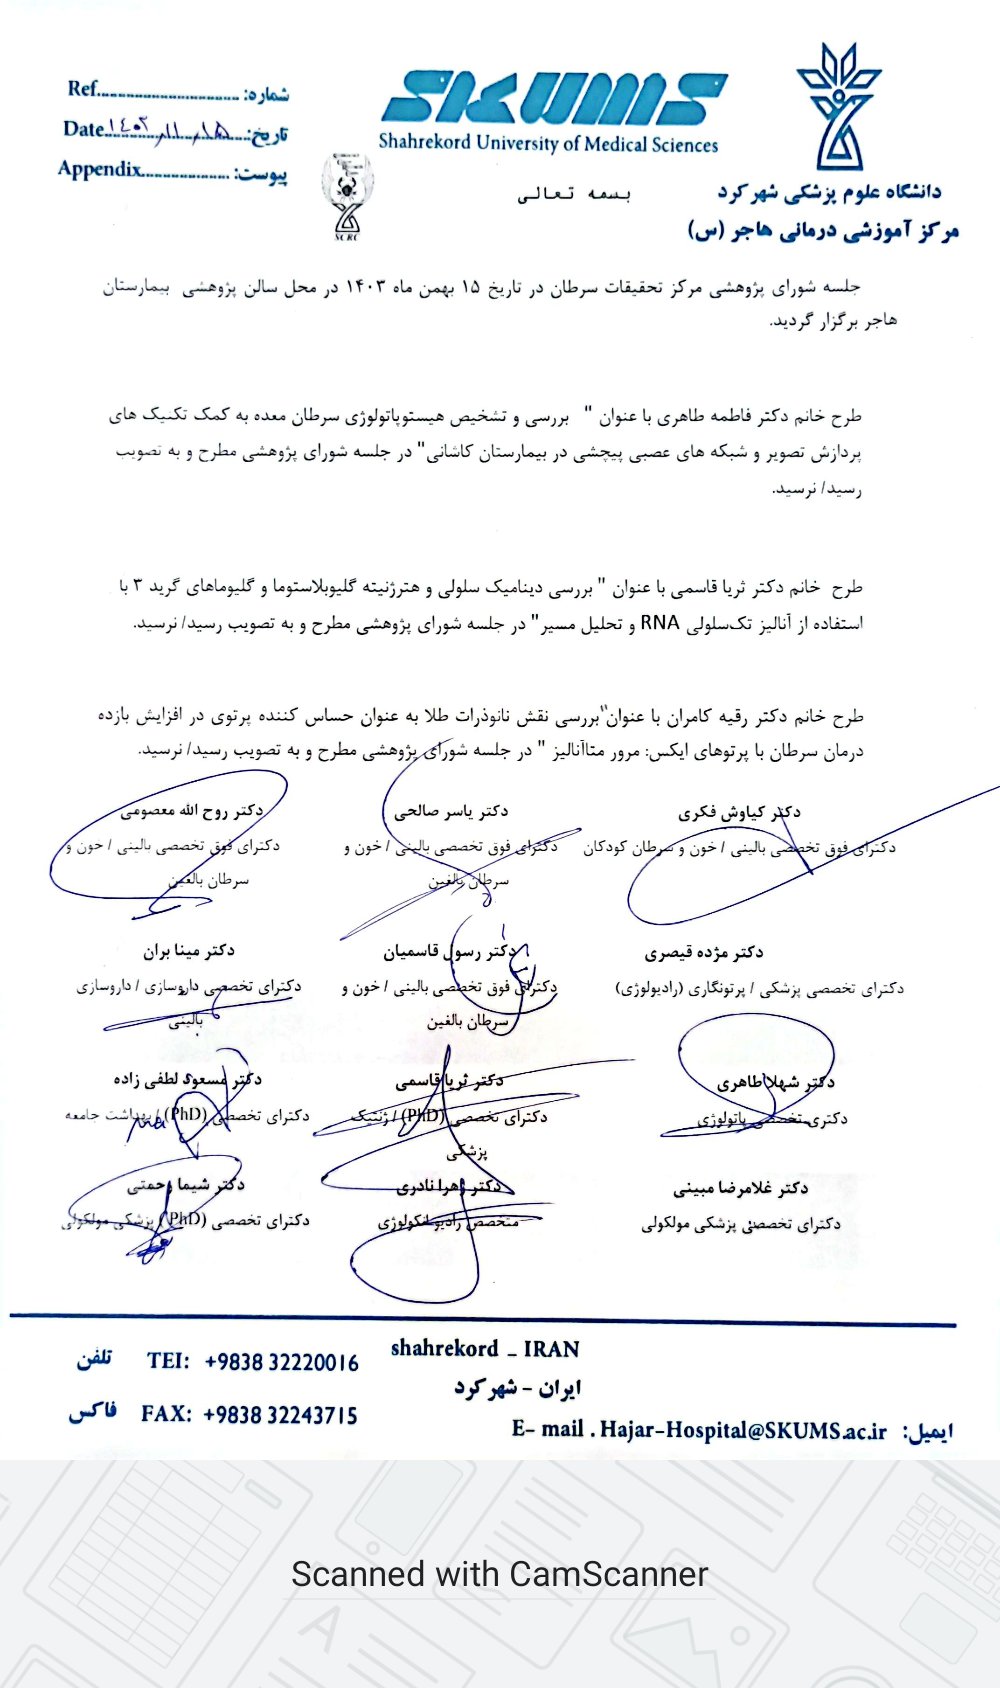 SKUMS
Shahrekord University of Medical Sciences
شماره: Ref
تاریخ: ۱۴۰۳/۱۱/۱۵ Date
پیوست: Appendix
SCRC
بسمه تعالی
دانشگاه علوم پزشکی شهر کرد
مرکز آموزشی درمانی هاجر (س)
جلسه شورای پژوهشی مرکز تحقیقات سرطان در تاریخ ۱۵ بهمن ماه ۱۴۰۳ در محل سالن پژوهشی بیمارستان
هاجر برگزار گردید.
طرح خانم دکتر فاطمه طاهری با عنوان " بررسی و تشخیص هیستوپاتولوژی سرطان معده به کمک تکنیک های
پردازش تصویر و شبکه های عصبی پیچشی در بیمارستان کاشانی" در جلسه شورای پژوهشی مطرح و به تصویب
رسید/ نرسید.
طرح خانم دکتر ثریا قاسمی با عنوان " بررسی دینامیک سلولی و هترژنیته گلیوبلاستوما و گلیوماهای گرید ۳ با
استفاده از آنالیز تک‌سلولی RNA و تحلیل مسیر" در جلسه شورای پژوهشی مطرح و به تصویب رسید/ نرسید.
طرح خانم دکتر رقیه کامران با عنوان"بررسی نقش نانوذرات طلا به عنوان حساس کننده پرتوی در افزایش بازده
درمان سرطان با پرتوهای ایکس: مرور متاآنالیز " در جلسه شورای پژوهشی مطرح و به تصویب رسید/ نرسید.
دکتر کیاوش فکری دکتر یاسر صالحی دکتر روح الله معصومی
دکترای فوق تخصصی بالینی / خون و سرطان کودکان دکترای فوق تخصصی بالینی / خون و دکترای فوق تخصصی بالینی / خون و
سرطان بالغین سرطان بالغین
دکتر مژده قیصری دکتر رسول قاسمیان دکتر مینا بران
دکترای تخصصی پزشکی / پرتونگاری (رادیولوژی) دکترای فوق تخصصی بالینی / خون و دکترای تخصصی داروسازی / داروسازی
سرطان بالغین بالینی
دکتر شهلا طاهری دکتر ثریا قاسمی دکتر مسعود لطفی زاده
دکتری تخصصی پاتولوژی دکترای تخصصی (PhD) / ژنتیک دکترای تخصصی (PhD) / بهداشت جامعه
پزشکی
دکتر غلامرضا مبینی دکتر زهرا نادری دکتر شیما رحمتی
دکترای تخصصی پزشکی مولکولی متخصص رادیوانکولوژی دکترای تخصصی (PhD) پزشکی مولکولی
shahrekord _ IRAN
ایران - شهر کرد
تلفن TEl: +9838 32220016
فاکس FAX: +9838 32243715
ایمیل: E- mail . Hajar-Hospital@SKUMS.ac.ir
Scanned with CamScanner